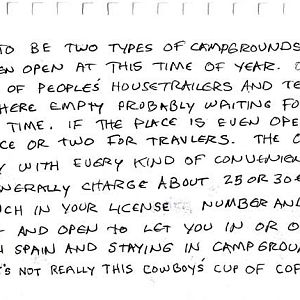 TO BE TWO TYPES OF CAMPGROUNDS
EN OPEN AT THIS TIME OF YEAR.
OF PEOPLE'S HOUSETRAILERS AND TE
HERE EMPTY PROBABLY WAITING FO
TIME. IF THE PLACE IS EVEN OPE
CE OR TWO FOR TRAVLERS. THE
Y WITH EVERY KIND OF CONVENIEN
NERALLY CHARGE ABOUT 25 OR 30
CH IN YOUR LICENSE NUMBER AN
AND OPEN TO LET YOU IN OR O
H SPAIN AND STAYING IN CAMPGROU
'S NOT REALLY THIS COWBOYS' CUP OF COF